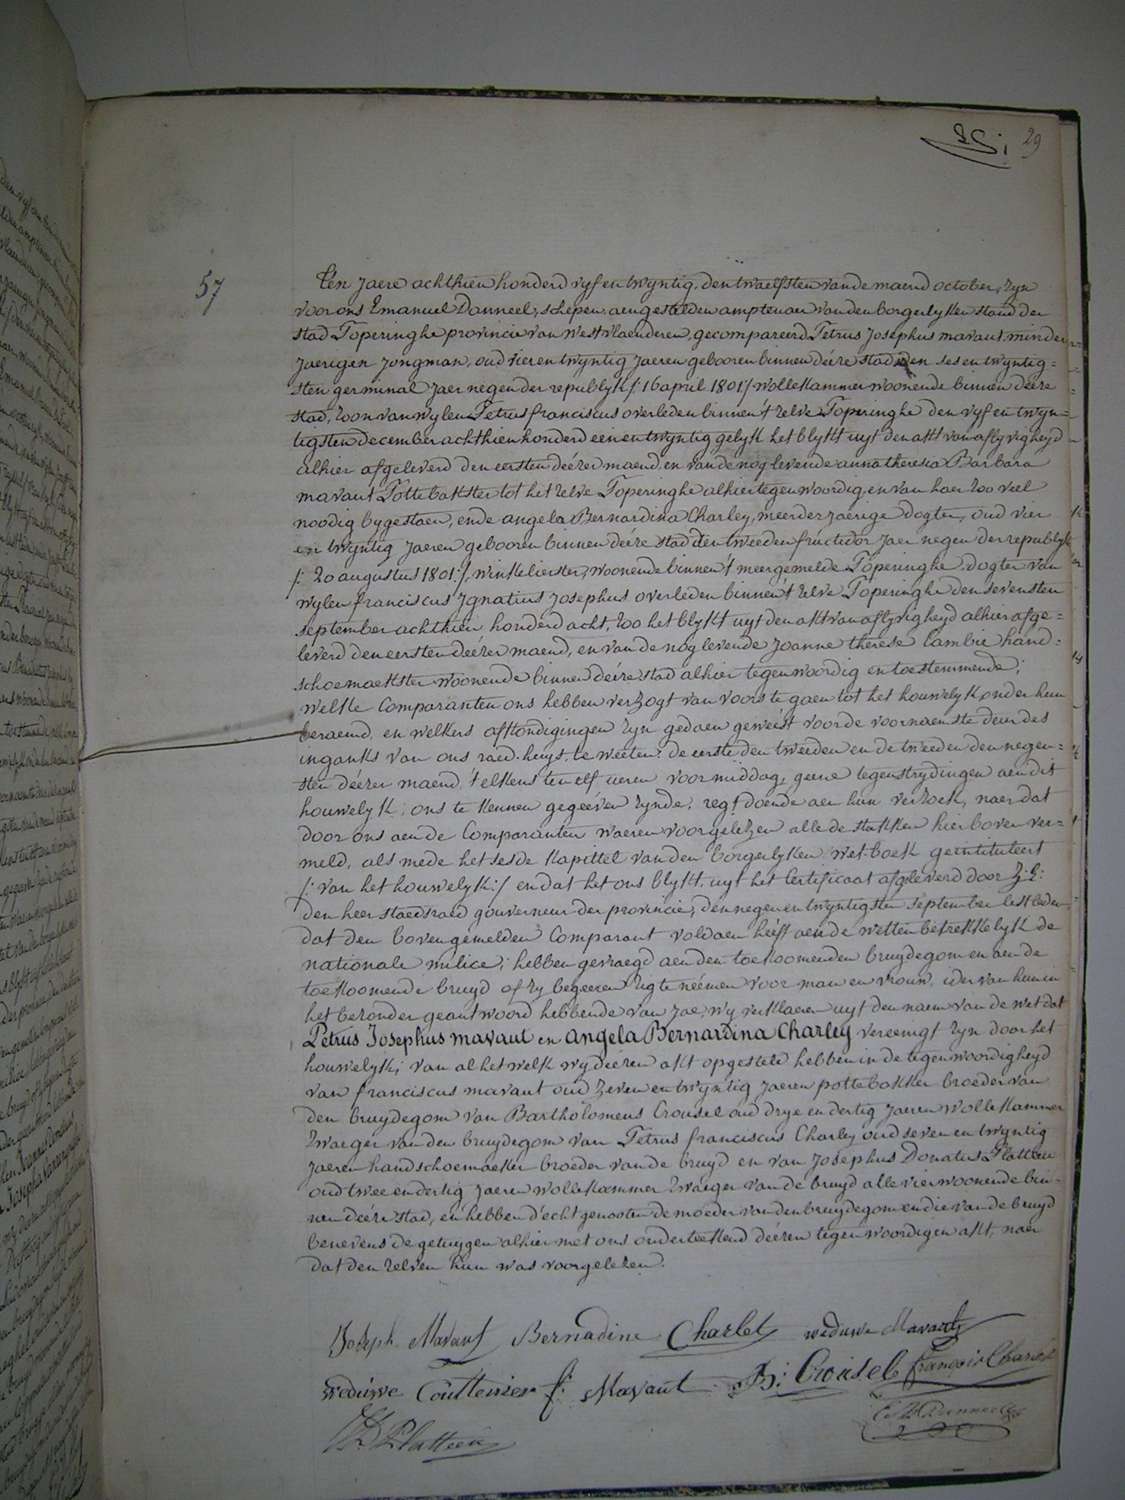 29
57
Ten Jaere achthien honderd vyf en twyntig, den twaelfsten van de maend october, zyn
voor ons Emanuel Donneel, schepen, aengestelden amptenaer van den borgerlyken stand der
stad Poperinghe provincie van Westvlaenderen, gecompareerd Petrus Josephus mavaut minder
Jaerigen Jongman, oud vier en twyntig Jaeren gebooren binnen deéze stad den ses en twyntig=
sten germinal Jaer negen der republyk /: 16 april 1801 :/ wollekammer woonende binnen deéze
stad, zoon van wylen Petrus franciscus overleden binnen 't zelve Poperinghe den vyf en twyn=
tigsten december achthien honderd een en twyntig gelyk het blykt uyt den akt van aflyvigheyd
alhier afgeleverd den eersten deézer maend, en van de nog levende anna theresia Barbara
mavaut Pottebakster tot het zelve Poperinghe alhier tegenwoordig, en van haer zoo veel
noodig bygestaen, ende angela Bernardina Charley, meerderjaerige dogter, oud vier
en twyntig Jaeren gebooren binnen deéze stad den tweeden fructidor Jaer negen der republyk
/: 20 augustus 1801 :/, winkelierster, woonende binnen 't meergemelde Poperinghe, dogter van
wylen franciscus Ignatius Josephus overleden binnen 't zelve Poperinghe den sevensten
september achthien honderd acht, zoo het blykt uyt den akt van aflyvigheyd alhier afge=
leverd den eersten deézer maend, en van de nog levende Joanne therese Cambie hand=
schoemaekster woonende binnen deéze stad alhier tegenwoordig en toestemmende;
welke Comparanten ons hebben verzogt van voors te gaen tot het houwelyk onder hun
beraemd, en welkers afkondigingen zyn gedaen geweést voor de voornaemste deur des
inganks van ons raed-huys, te weeten: de eerste den tweeden en de tweede den negen=
sten deézer maend, 't elkens ten elf ueren voormiddag, geene tegenstrydingen aen dit
houwelyk, ons te kennen gegeéven zynde, regt doende aen hun verzoek, naer dat
door ons aen de Comparanten waeren voorgelezen alle de stukken hier boven ver=
meld, als mede het sesde kapittel van den borgerlyken wet-boek geintituleert
/: van het houwelyk :/ en dat het ons blykt, uyt het Certificaat afgeleverd door Z: E:
den heer staedsraed gouverneur der provincie, den negen en twyntigsten september lestleden
dat den bovengemelden Comparant voldaen heéft aen de wetten betrekkelyk de
nationale milice; hebben gevraegd aen den toekoomenden bruydegom en aen de
toekoomende bruyd of zy begeeren zig te néémen voor man en vrouw, ider van hun in
het bezonder geantwoord hebbende van Jae, wy verklaeren uyt den naem van de wet dat
Petrus Josephus mavaut en angela Bernardina Charley vereenigt zyn door het
houwelyk; van al het welk wy deézen akt opgesteld hebben in de tegenwoordigheyd
van franciscus mavaut oud zeven en twyntig Jaeren pottebakker broeder van
den bruydegom van Bartholomeus Crousel oud drye en dertig Jaeren wollekammer
zwaeger van den bruydegom van Petrus franciscus Charley oud seven en twyntig
Jaeren handschoemaeker broeder van de bruyd en van Josephus Donatus Platteeu
oud twee en dertig Jaeren wollekammer zwaeger van de bruyd alle vier woonende bin=
nen deéze stad, en hebben d'echtgenooten de moeder van den bruydegom en die van de bruyd
benevens de getuygen alhier met ons onderteekend deézen tegenwoordigen akt, naer
dat den zelven hun was voorgelezen.
Joseph Mavaut Bernadine Charlet weduwe Mavaut
weduwe f: Mavaut B: Crousel françois Charlet
Platteeu